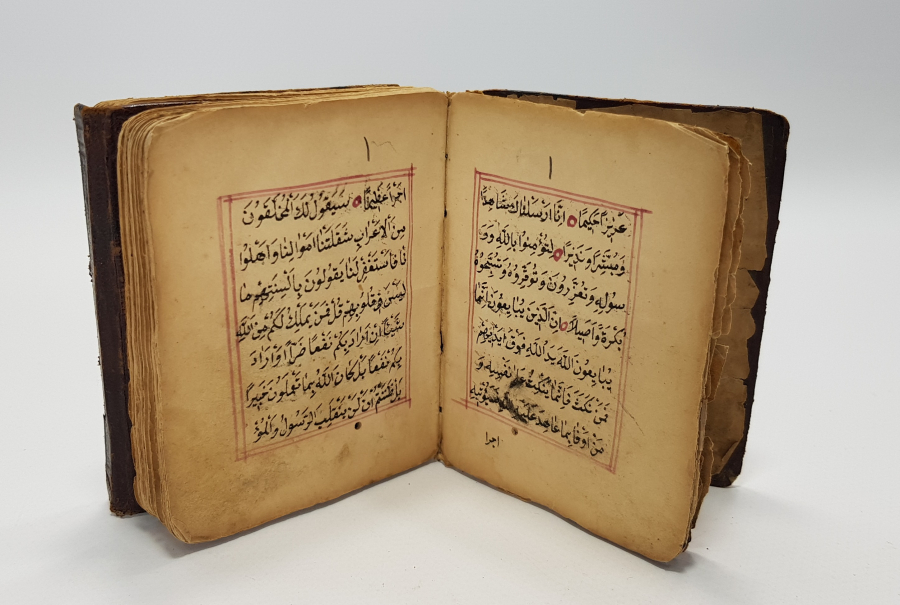 ١
عَزِيْزًا حَكِيْمًا اِنَّا اَرْسَلْنٰكَ شَاهِدًا
وَمُبَشِّرًا وَنَذِيْرًا لِتُؤْمِنُوْا بِاللّٰهِ وَرَ
سُوْلِهِ وَتُعَزِّرُوْهُ وَتُوَقِّرُوْهُ وَتُسَبِّحُوْهُ
بُكْرَةً وَّاَصِيْلًا اِنَّ الَّذِيْنَ يُبَايِعُوْنَكَ اِنَّمَا
يُبَايِعُوْنَ اللّٰهَ يَدُ اللّٰهِ فَوْقَ اَيْدِيْهِمْ
فَمَنْ نَكَثَ فَاِنَّمَا يَنْكُثُ عَلٰى نَفْسِهِ وَ
مَنْ اَوْفٰى بِمَا عَاهَدَ عَلَيْهُ
اجرا
١
اَجْرًا عَظِيْمًا سَيَقُوْلُ لَكَ الْمُخَلَّفُوْنَ
مِنَ الْاَعْرَابِ شَغَلَتْنَا اَمْوَالُنَا وَاَهْلُوْ
نَا فَاسْتَغْفِرْ لَنَا يَقُوْلُوْنَ بِاَلْسِنَتِهِمْ مَا
لَيْسَ فِي قُلُوْبِهِمْ قُلْ فَمَنْ يَمْلِكُ لَكُمْ مِنَ اللّٰهِ
شَيْئًا اِنْ اَرَادَ بِكُمْ نَفْعًا ضَرًّا اَوْ اَرَادَ
بِكُمْ نَفْعًا بَلْ كَانَ اللّٰهُ بِمَا تَعْمَلُوْنَ خَبِيْرًا
بَلْ ظَنَنْتُمْ اَنْ لَنْ يَنْقَلِبَ الرَّسُوْلُ وَالْمُؤْ